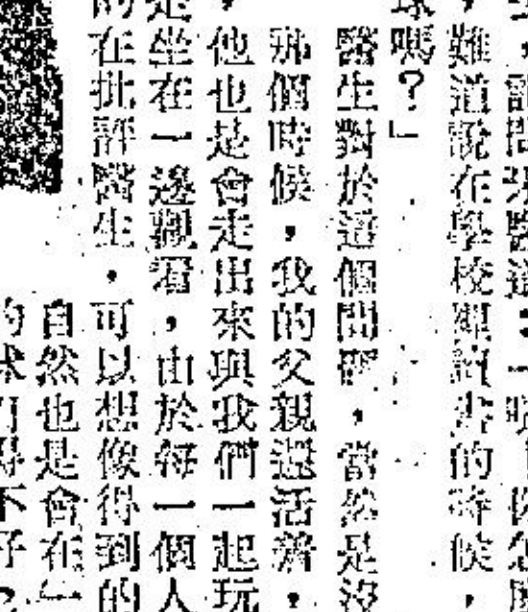 ，難道說在學校裡讀書的時候，
球嗎？」
醫生對於這個問題，當然是沒
那個時候，我的父親還活着，
，他也是會走出來與我們一起玩
是坐在一邊觀看，由於每一個人
的在批評醫生。可以想像得到的
自然也是會在